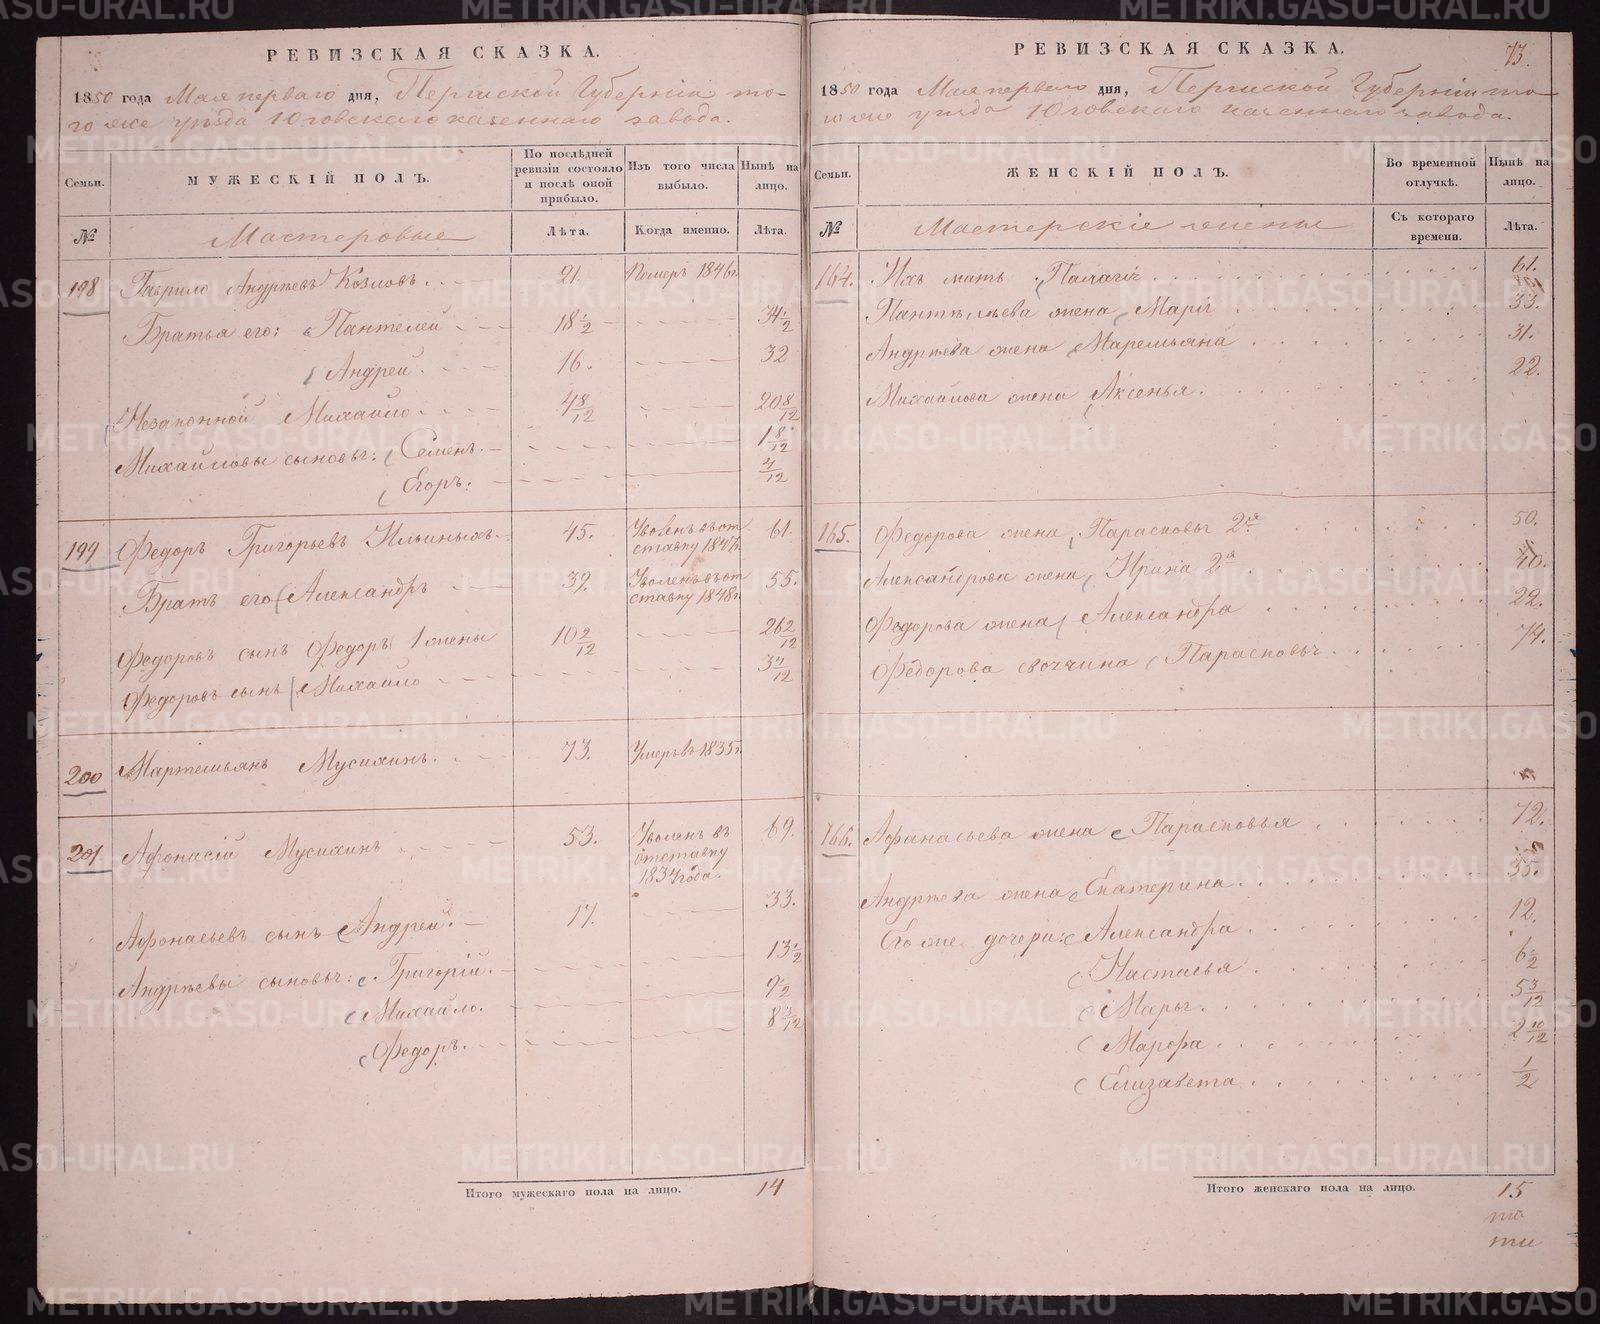 РЕВИЗСКАЯ СКАЗКА.
1850 года Мая перваго дня, Пермской Губерніи то-
го же уѣзда Юговскаго казеннаго завода.
Семьи.
МУЖЕСКІЙ ПОЛЪ.
По послѣдней ревизіи состояло и послѣ оной прибыло.
Изъ того числа выбыло.
Нынѣ на лицо.
№
Мастеровые
Лѣта.
Когда именно.
Лѣта.
198 Гаврило Андреевъ Козловъ. 21. Померъ 1846г.
Братья его: Пантелей 18 1/2 34 1/2
Андрей. 16. 32
Незаконной Михайло 4 8/12 20 8/12
Михайловы сыновья: Семенъ. 1 8/12
Егоръ. 4/12
199 Федоръ Григорьевъ Ильиныхъ 45. Уволенъ въ от
ставку 1847г. 61.
Братъ его Александръ 39. Уволенъ въ от
ставку 1848г. 55.
Федоровъ сынъ Федоръ 1 жены 10 2/12 26 2/12
Федоровъ сынъ Михайло 3 4/12
200 Мартемьянъ Мусихинъ. 73. Умеръ въ 1835г.
201 Афонасій Мусихинъ 53. Уволенъ въ
отставку
1834 года. 69.
Афонасьевъ сынъ Андрей. 17. 33.
Андреевы сыновья: Григорій. 13 1/2
Михайло. 9 1/2
Федоръ. 8 3/12
Итого мужескаго пола на лицо. 14
РЕВИЗСКАЯ СКАЗКА.
73.
1850 года Мая перваго дня, Пермской Губерніи то-
го же уѣзда Юговскаго казеннаго завода.
Семьи.
ЖЕНСКІЙ ПОЛЪ.
Во временной отлучкѣ.
Нынѣ на лицо.
№
Мастерскіе жены
Съ котораго времени.
Лѣта.
164. Ихъ мать Палагія 61.
Пантелѣева жена Марія 33.
Андрѣева жена Маремьяна 31.
Михайлова жена Аксенья. 22.
165. Федорова жена Парасковья 2я 50.
Александрова жена Ирина 2я 40.
Федорова жена Александра 22.
Федорова своячина Парасковья 74.
166. Афанасьева жена Парасковья 72.
Андрѣева жена Екатерина. 35.
Его же дочери: Александра 12.
Настасья 6 1/2
Марья. 5 3/12
Марфа 2 10/12
Елизавета 1/2
Итого женскаго пола на лицо. 15
METRIKI.GASO-URAL.RU